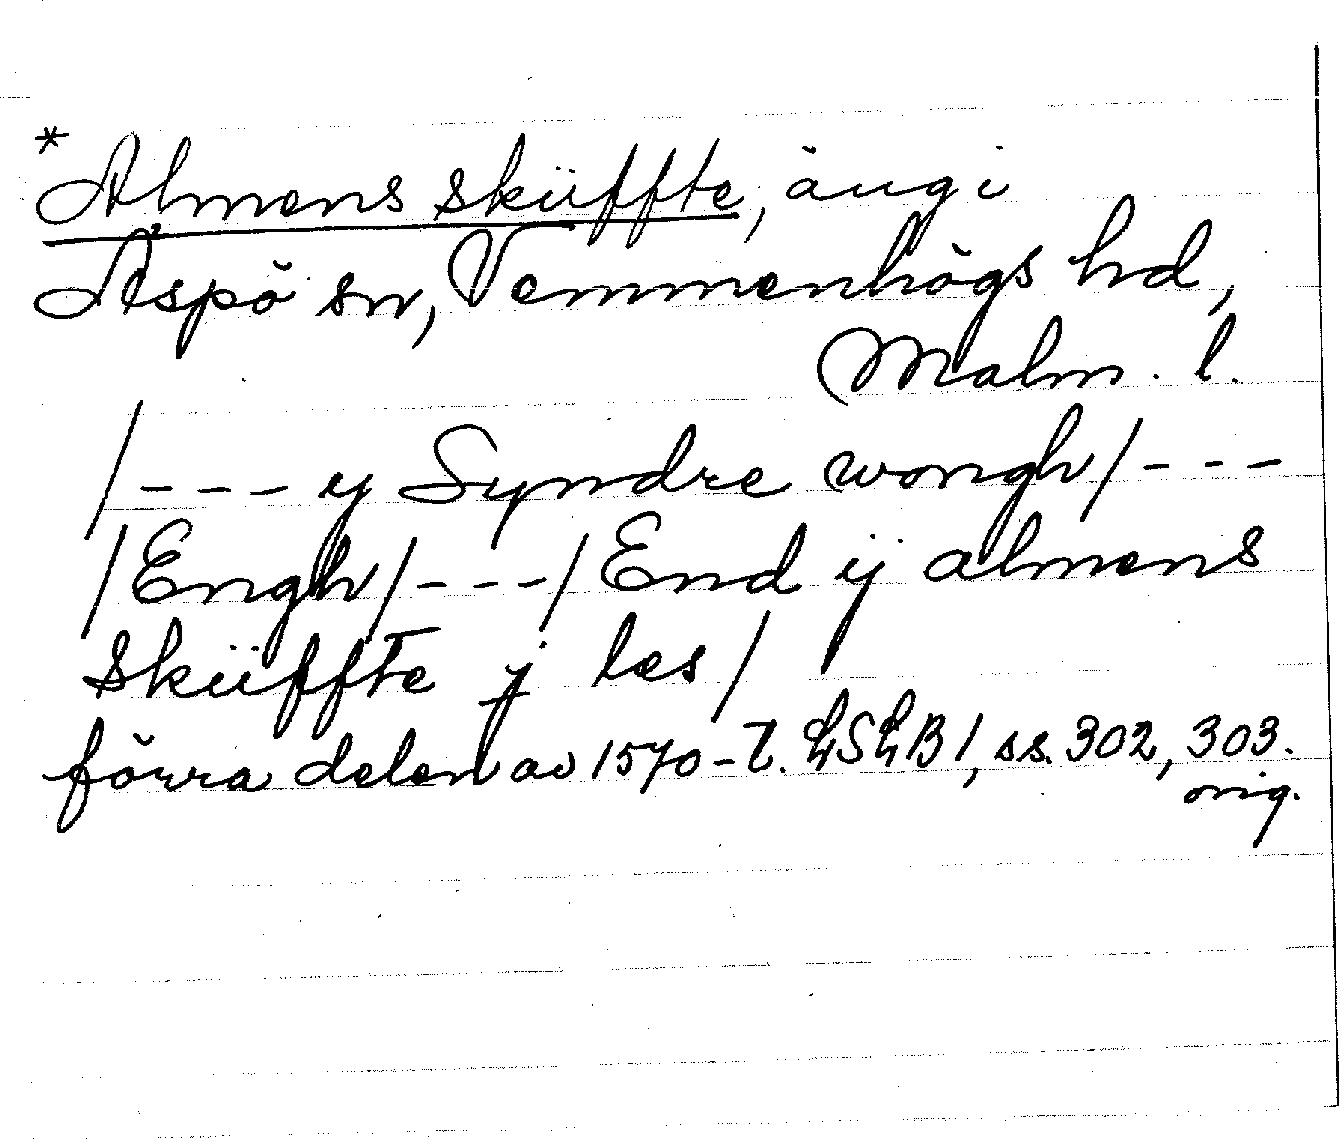 *
Almens sküffte, äng i
Äspö sn, Vemmenhögs hd,
Malm. l.
/--- y Syndre wongh/---
/Engh/---/End ÿ almens
sküffte j les/
förra delen av 1570-t. LSLB 1, ss. 302, 303.
orig.